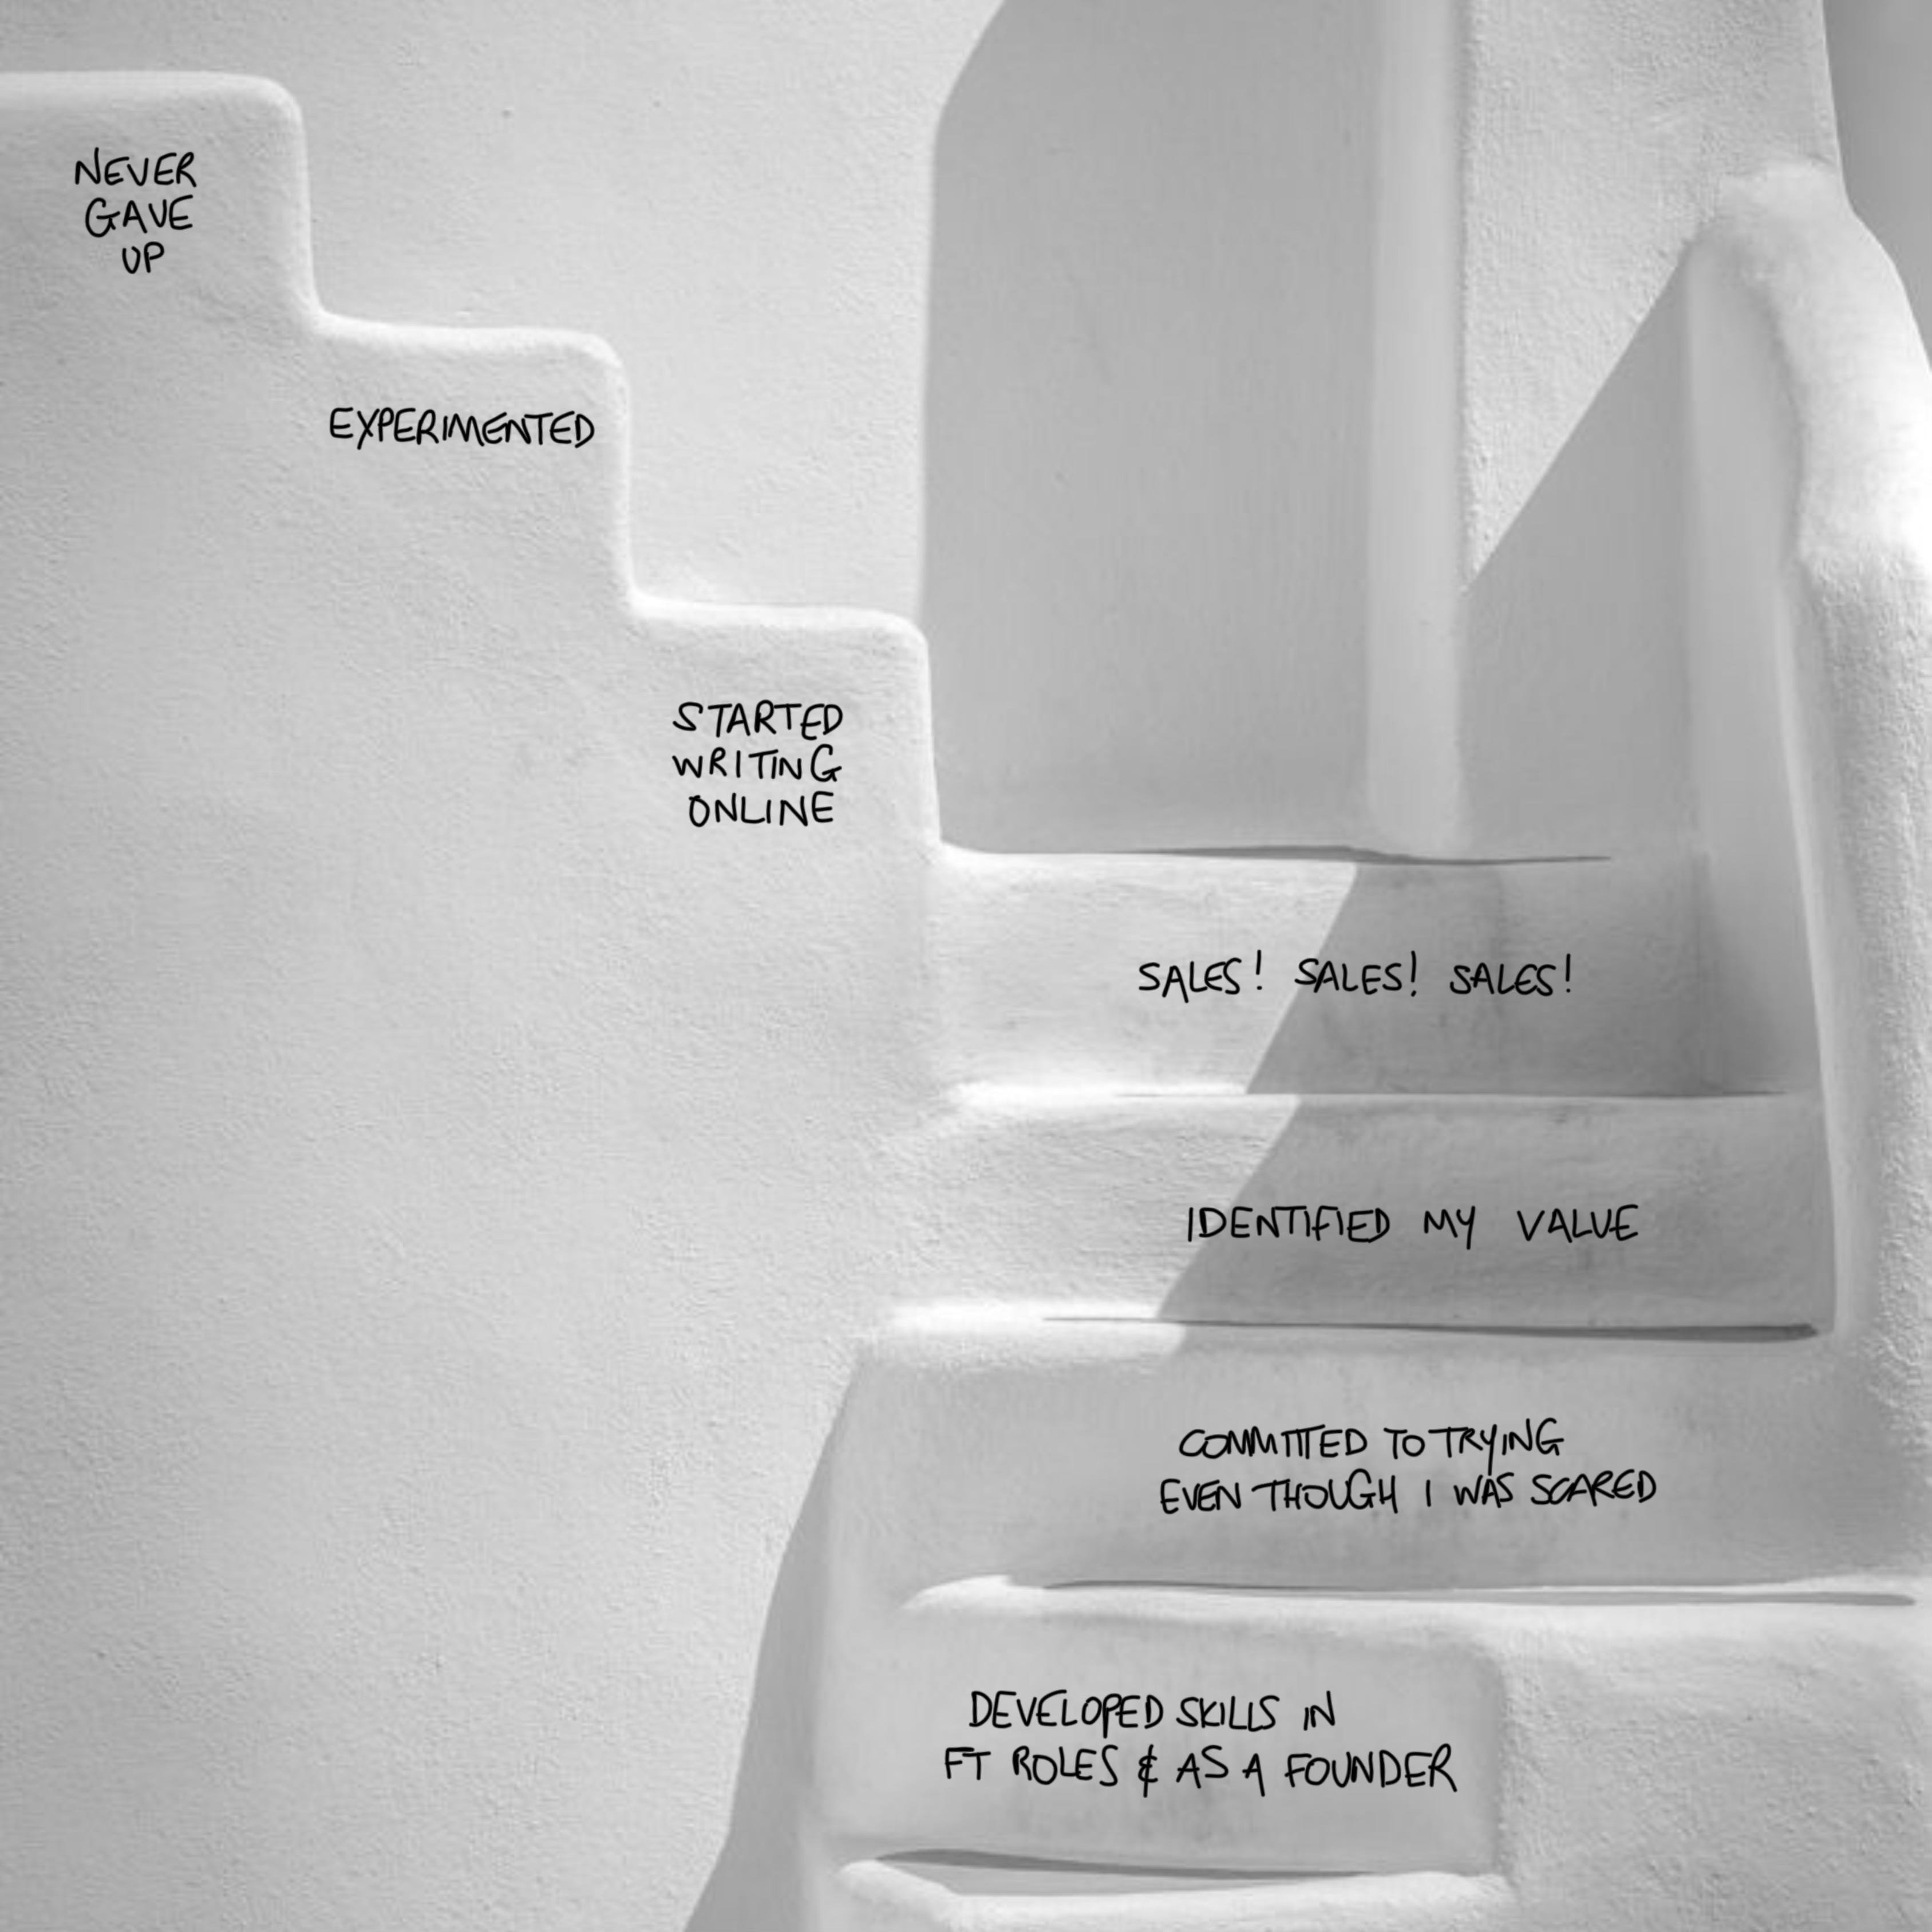 NEVER
GAVE
UP
EXPERIMENTED
STARTED
WRITING
ONLINE
SALES! SALES! SALES!
IDENTIFIED MY VALUE
COMMITTED TO TRYING
EVEN THOUGH I WAS SCARED
DEVELOPED SKILLS IN
FT ROLES & AS A FOUNDER